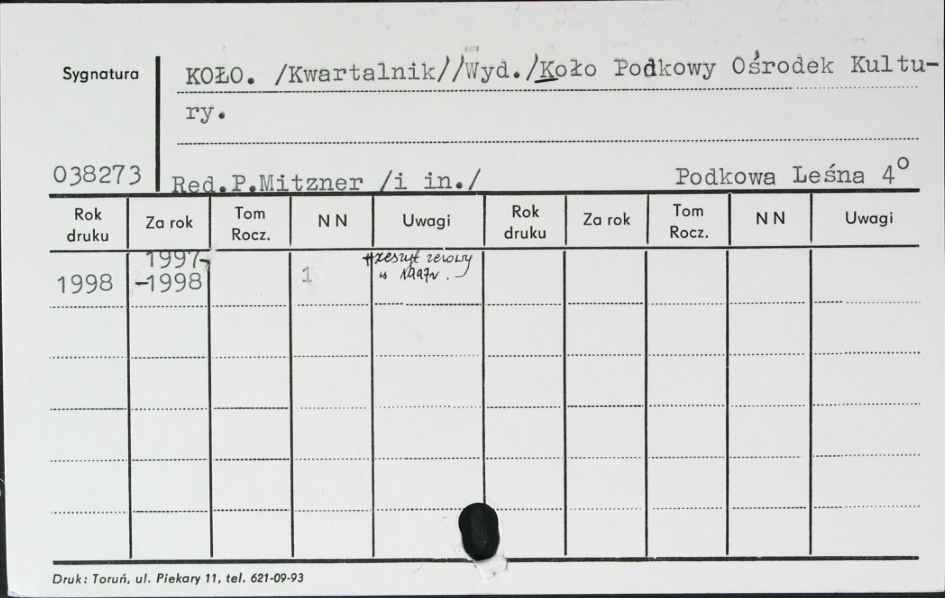 Sygnatura
KOŁO. /Kwartalnik//Wyd./Koło Podkowy Ośrodek Kultu-
ry.
038273
Red.P.Mitzner /i in./ Podkowa Leśna 4°
Rok druku Za rok Tom Rocz. N N Uwagi Rok druku Za rok Tom Rocz. N N Uwagi
1997- +zeszyt zerowy
1998 -1998 1 w 1997r.
Druk: Toruń, ul. Piekary 11, tel. 621-09-93